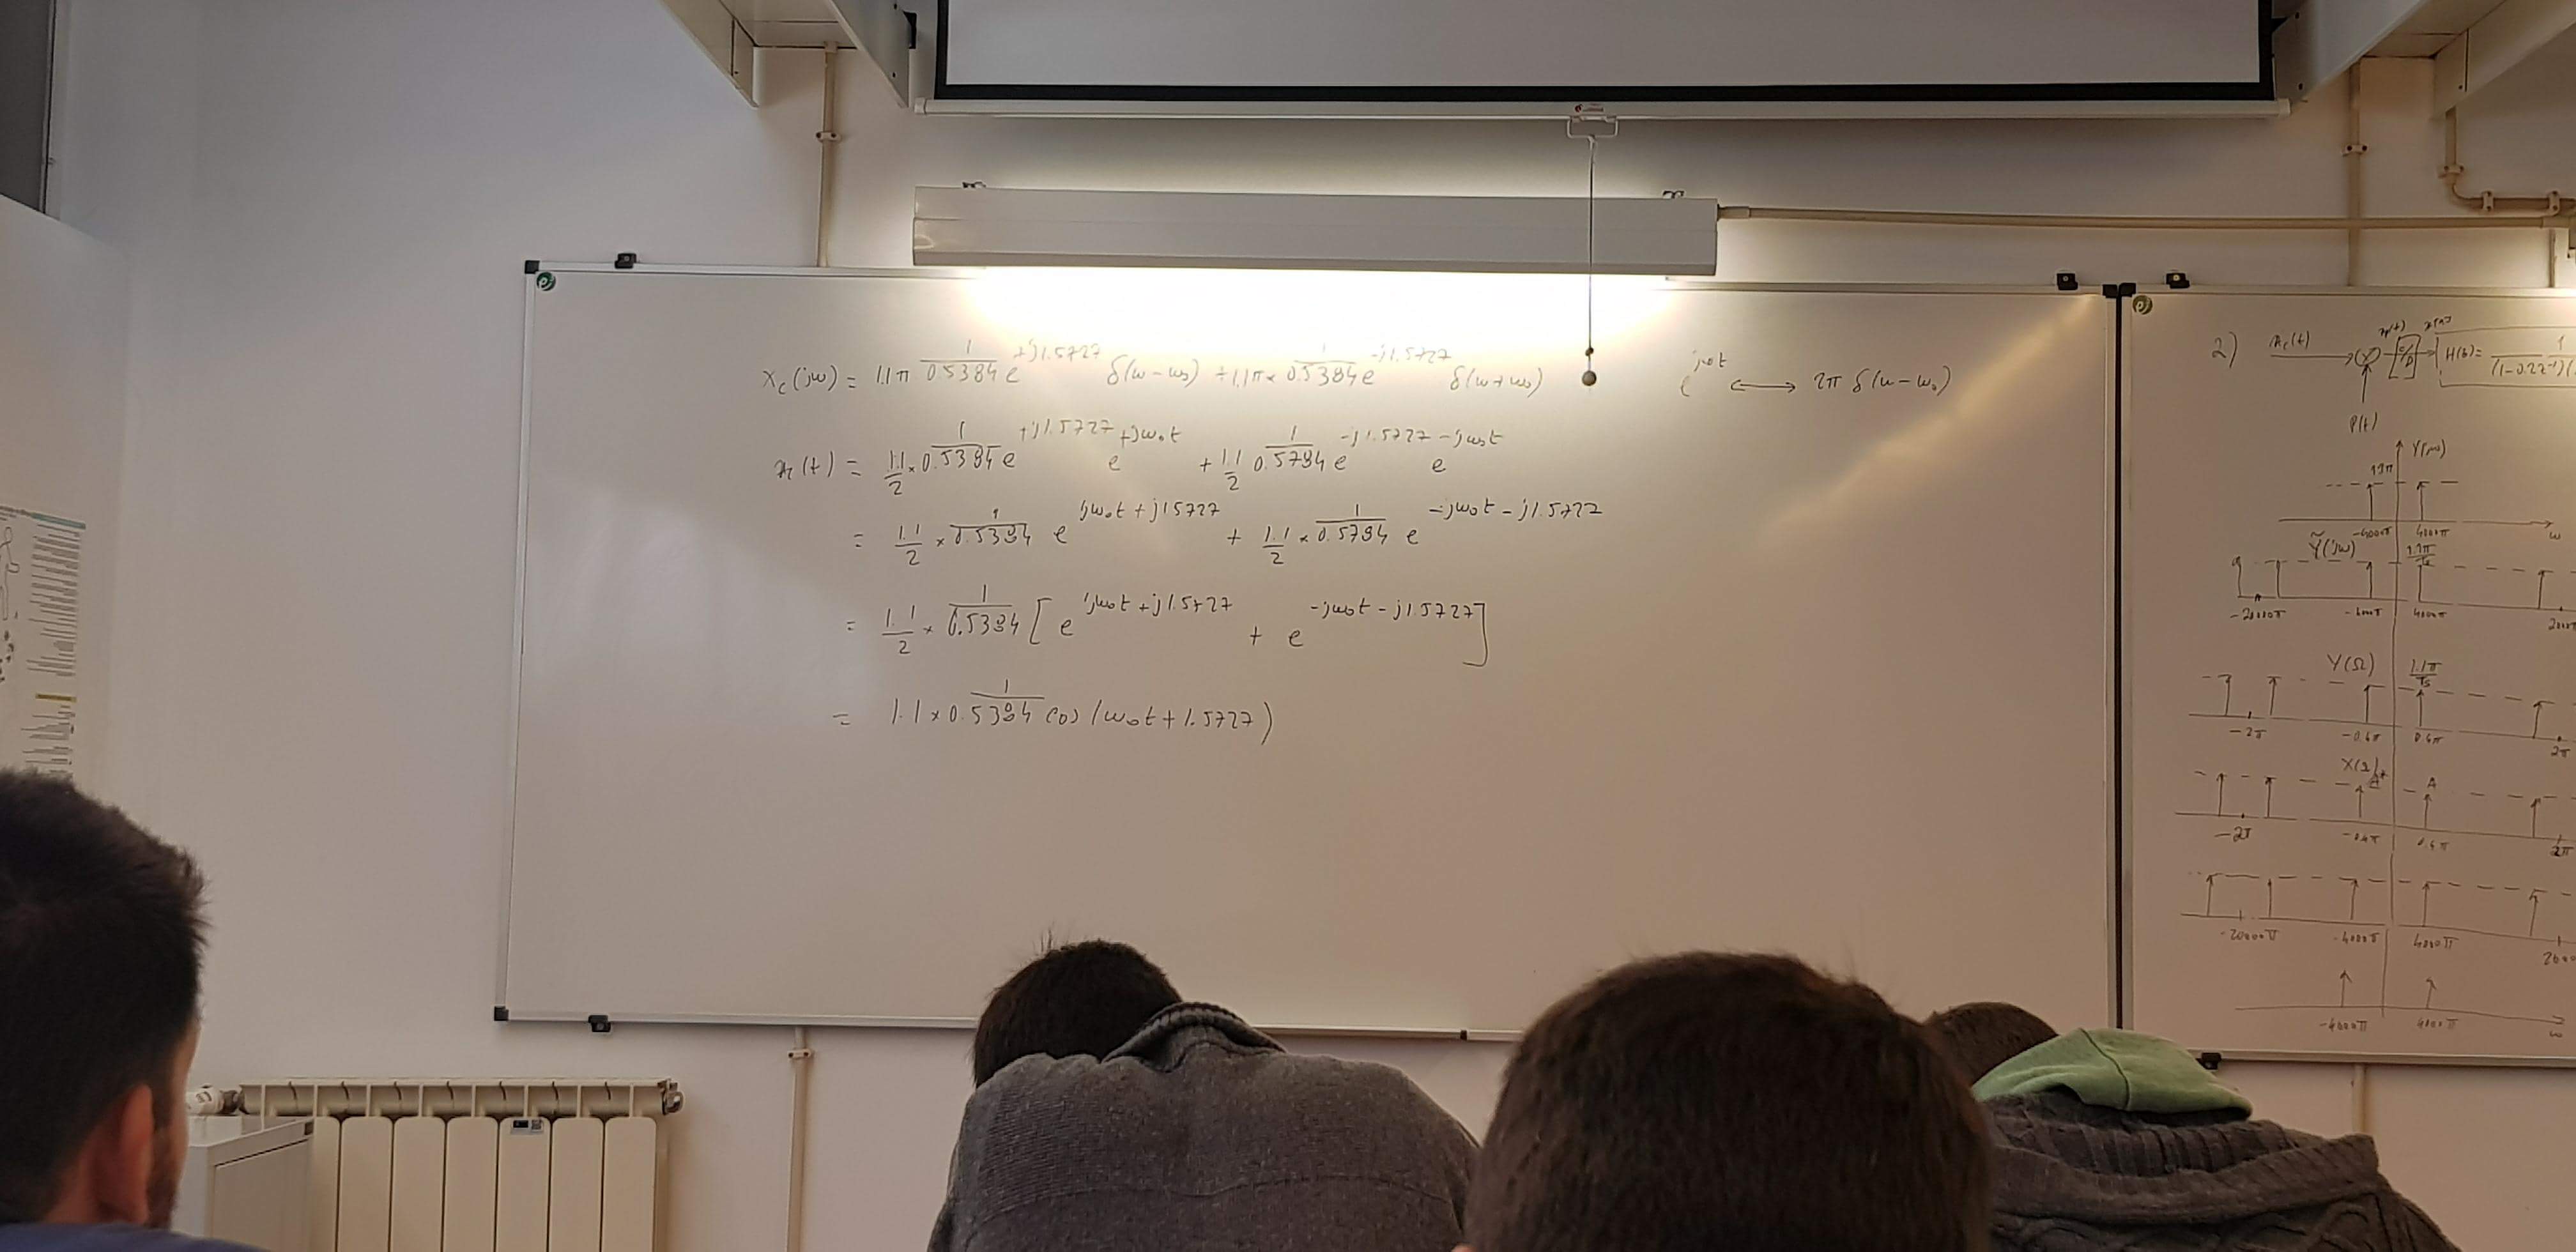 Xc(jω) = 1.1π 1/0.5384 e^{+j1.5727} δ(ω-ω₀) + 1.1π × 1/0.5384 e^{-j1.5727} δ(ω+ω₀)
e^{jω₀t} ⟷ 2π δ(ω-ω₀)
(t) = 1.1/2 × 1/0.5384 e^{+j1.5727} e^{+jω₀t} + 1.1/2 1/0.5784 e^{-j1.5727} e^{-jω₀t}
= 1.1/2 × 1/0.5384 e^{jω₀t + j1.5727} + 1.1/2 × 1/0.5784 e^{-jω₀t - j1.5727}
= 1.1/2 × 1/0.5384 [ e^{jω₀t + j1.5727} + e^{-jω₀t - j1.5727} ]
= 1.1 × 1/0.5384 cos(ω₀t + 1.5727)
2) xc(t) × C/D H(z) = 1/(1-0.2z⁻¹)(
p(t)
Y(jω)
1.1π
-4000π 4000π ω
Ỹ(jω) 1.1π/Ts
-20000π 4000π
Y(Ω) 1.1π/Ts
-2π -0.4π 0.4π 2π
X(Ω)
A* A
-2π -0.4π 0.4π 2π
-20000π -4000π 4000π
-4000π 4000π ω